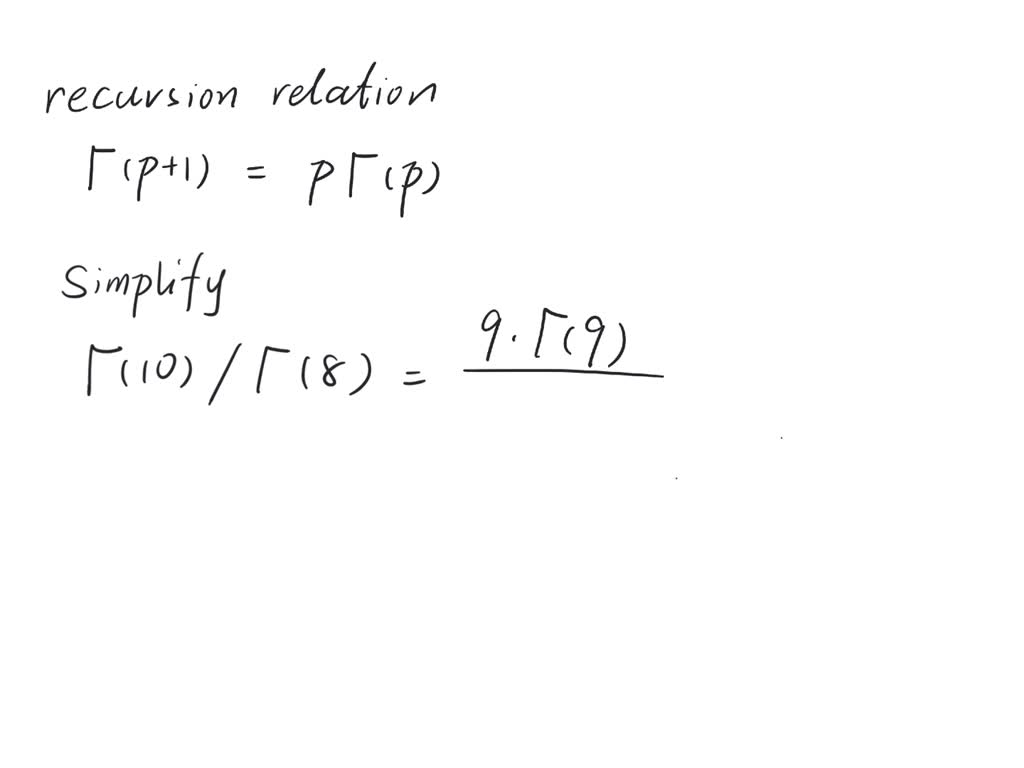 recursion relation
Γ(p+1) = pΓ(p)
Simplify
9·Γ(9)
Γ(10)/Γ(8) =